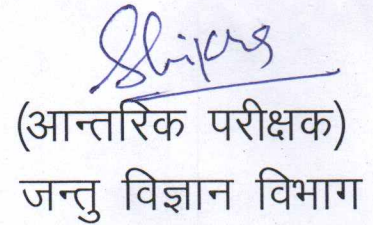 (आन्तरिक परीक्षक)
जन्तु विज्ञान विभाग